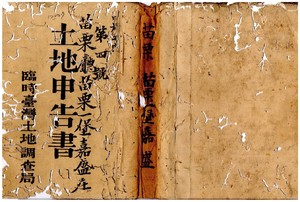 第四號
苗栗廳苗栗一堡嘉盛庄
土地申告書
臨時臺灣土地調查局
苗栗 苗栗一堡嘉盛